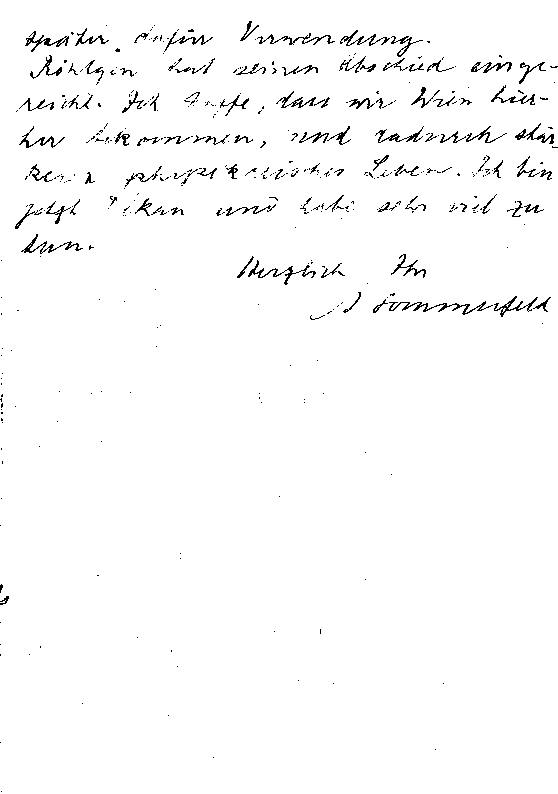 später dafür Verwendung.
Röntgen hat seinen Abschied einge-
reicht. Ich hoffe, dass wir Wien hier-
her bekommen, und dadurch stär-
keres physikalisches Leben. Ich bin
jetzt Dekan und habe sehr viel zu
tun.
Herzlich Ihr
A Sommerfeld